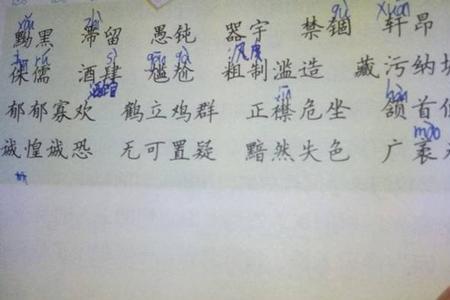 yǒu zhì gù xuān
黝黑 滞留 愚钝 器宇 禁锢 轩昂
zhū rú sì gān gà 风度
侏儒 酒肆 尴尬 粗制滥造 藏污纳
jīn hàn
郁郁寡欢 鹤立鸡群 正襟危坐 颔首
mào
诚惶诚恐 无可置疑 黯然失色 广袤